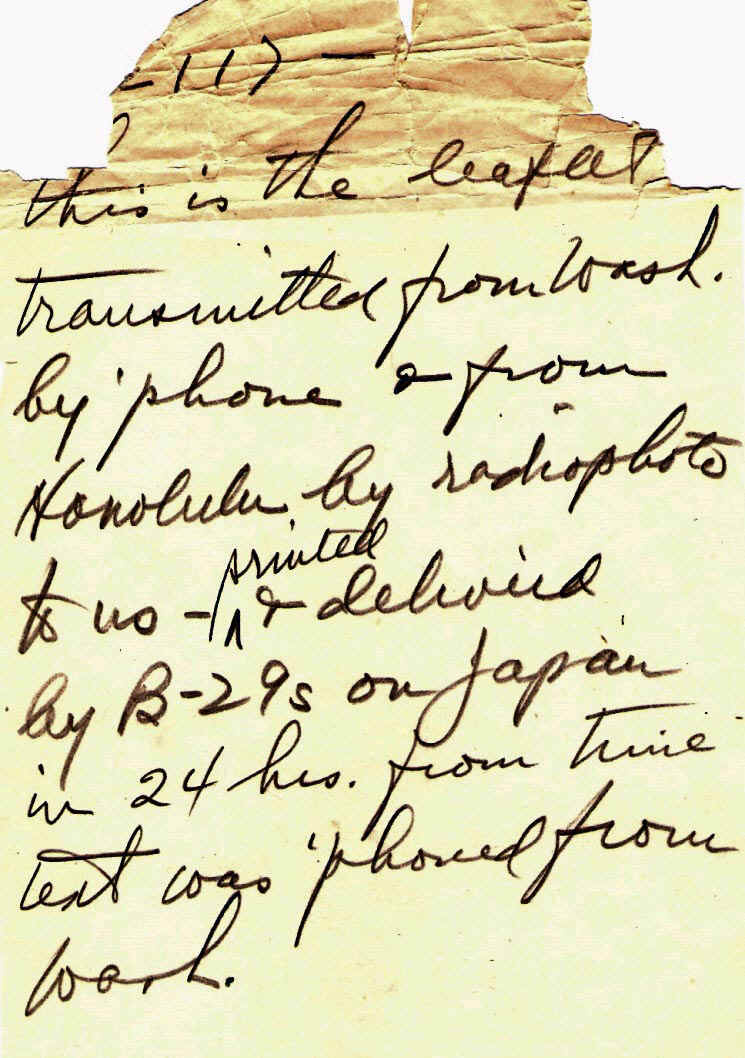 -117-
this is the leaflet
transmitted from Wash.
by 'phone & from
Honolulu by radiophoto
to us - printed & delivered
by B-29s on Japan
in 24 hrs. from time
text was 'phoned from
Wash.